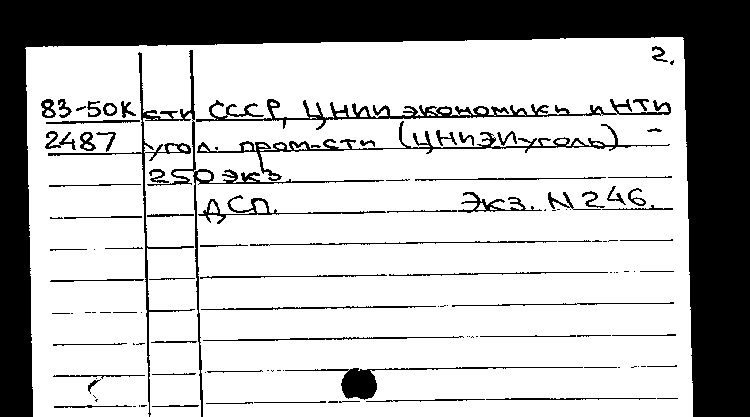 2.
83-50К сти СССР, ЦНИИ экономики и НТИ
2487 угол. пром-сти (ЦНИЭИуголь) –
250 экз.
ДСП. Экз. N 246.